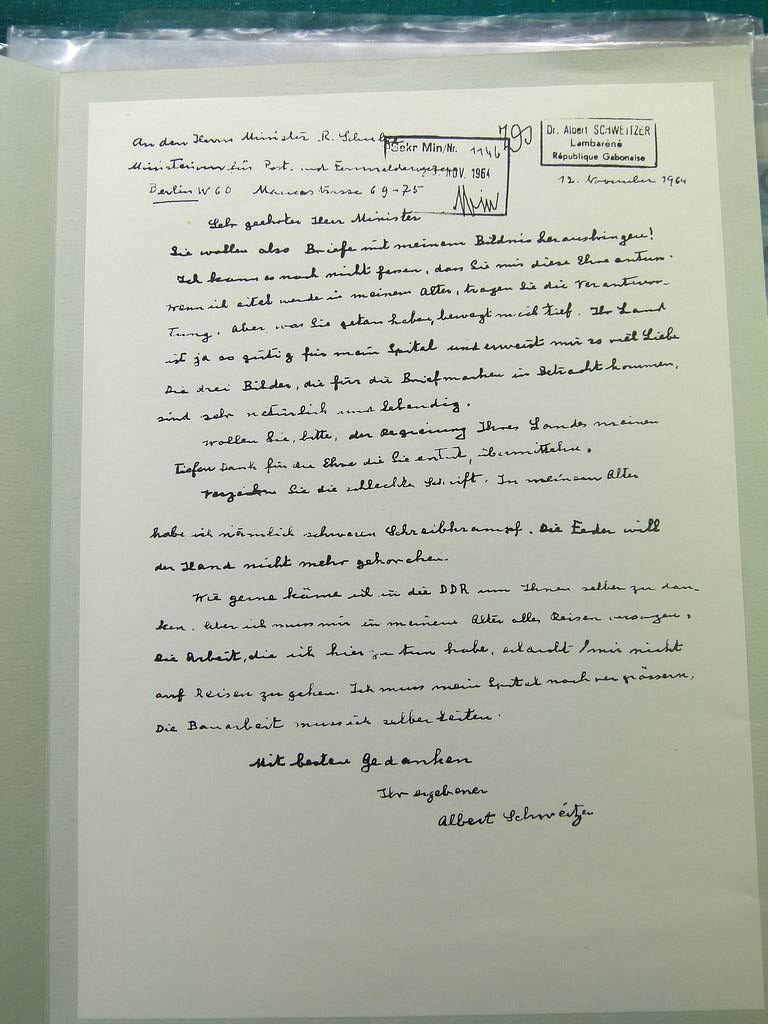 An den Herrn Minister R. Schulze
Sekr Min/Nr. 1146
NOV. 1964
Dr. Albert SCHWEITZER
Lambaréné
République Gabonaise
Ministerium für Post- und Fernmeldewesen
Berlin W 60 Mauerstrasse 69-75
12. November 1964
Sehr geehrter Herr Minister
Sie wollen also Briefe mit meinem Bildnis herausbringen!
Ich kann es noch nicht fassen, dass Sie mir diese Ehre antun.
Wenn ich eitel werde in meinem Alter, tragen Sie die Verantwor-
tung. Aber was Sie getan haben, bewegt mich tief. Ihr Land
ist ja so gütig für mein Spital und erweist mir so viel Liebe
Die drei Bilder, die für die Briefmarken in Betracht kommen,
sind sehr natürlich und lebendig.
Wollen Sie, bitte, der Regierung Ihres Landes meinen
tiefen Dank für die Ehre die Sie, übermitteln.
Verzeihen Sie die schlechte Schrift. In meinem Alter
habe ich nämlich schweren Schreibkrampf. Die Feder will
der Hand nicht mehr gehorchen.
Wie gerne käme ich in die DDR um Ihnen selber zu dan-
ken. Aber ich muss mir in meinem Alter alles Reisen versagen.
Die Arbeit, die ich hier zu tun habe, erlaubt mir nicht
auf Reisen zu gehen. Ich muss mein Spital noch vergrössern.
Die Bauarbeit muss ich selber leiten.
Mit besten Gedanken
Ihr ergebener
Albert Schweitzer